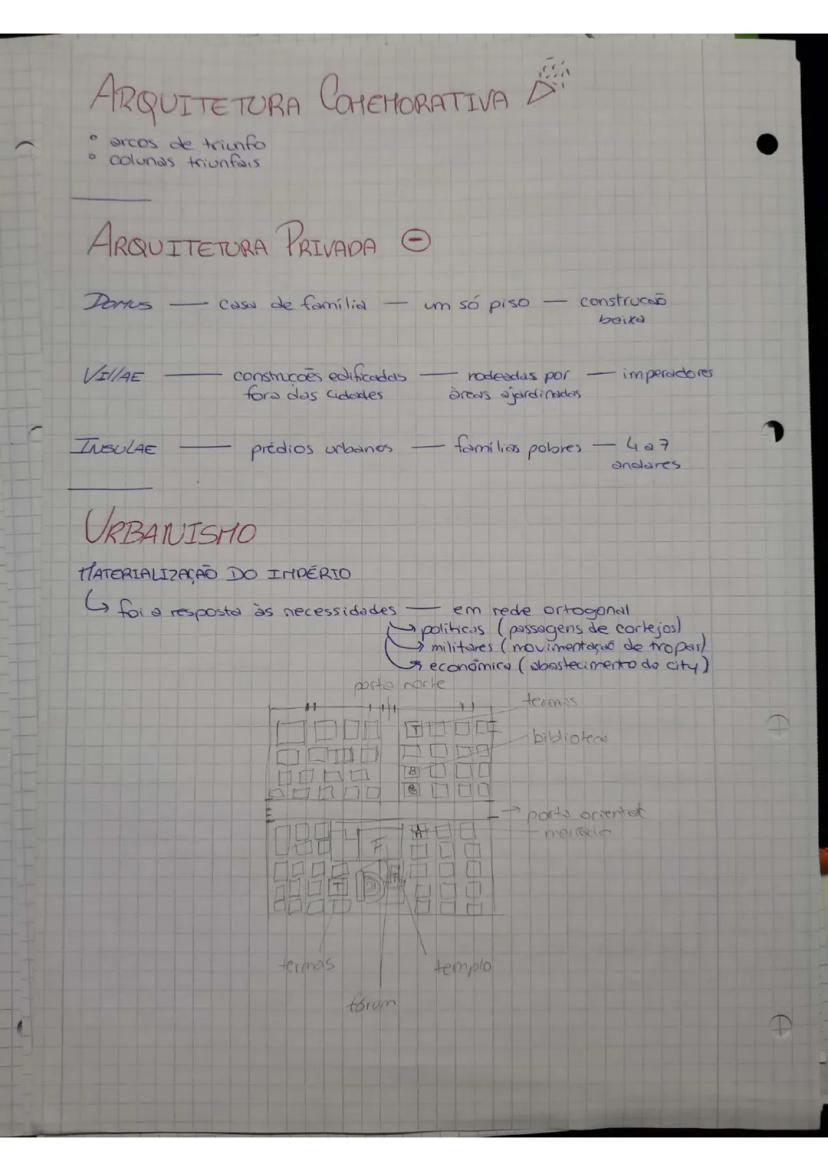 ARQUITETURA COMEMORATIVA
° arcos de triunfo
° colunas triunfais
ARQUITETURA PRIVADA
Domus — casa de família — um só piso — construção baixa
VillAE — construções edificadas fora das cidades — rodeadas por áreas ajardinadas — imperadores
INSULAE — prédios urbanos — famílias pobres — 4 a 7 andares
URBANISMO
MATERIALIZAÇÃO DO IMPÉRIO
↳ foi a resposta às necessidades — em rede ortogonal
→ políticas (passagens de cortejos)
→ militares (movimentação de tropas)
→ económica (abastecimento da city)
porta norte
termas
T
biblioteca
B
B
→ porta oriental
mercado
F
T
termas
templo
fórum